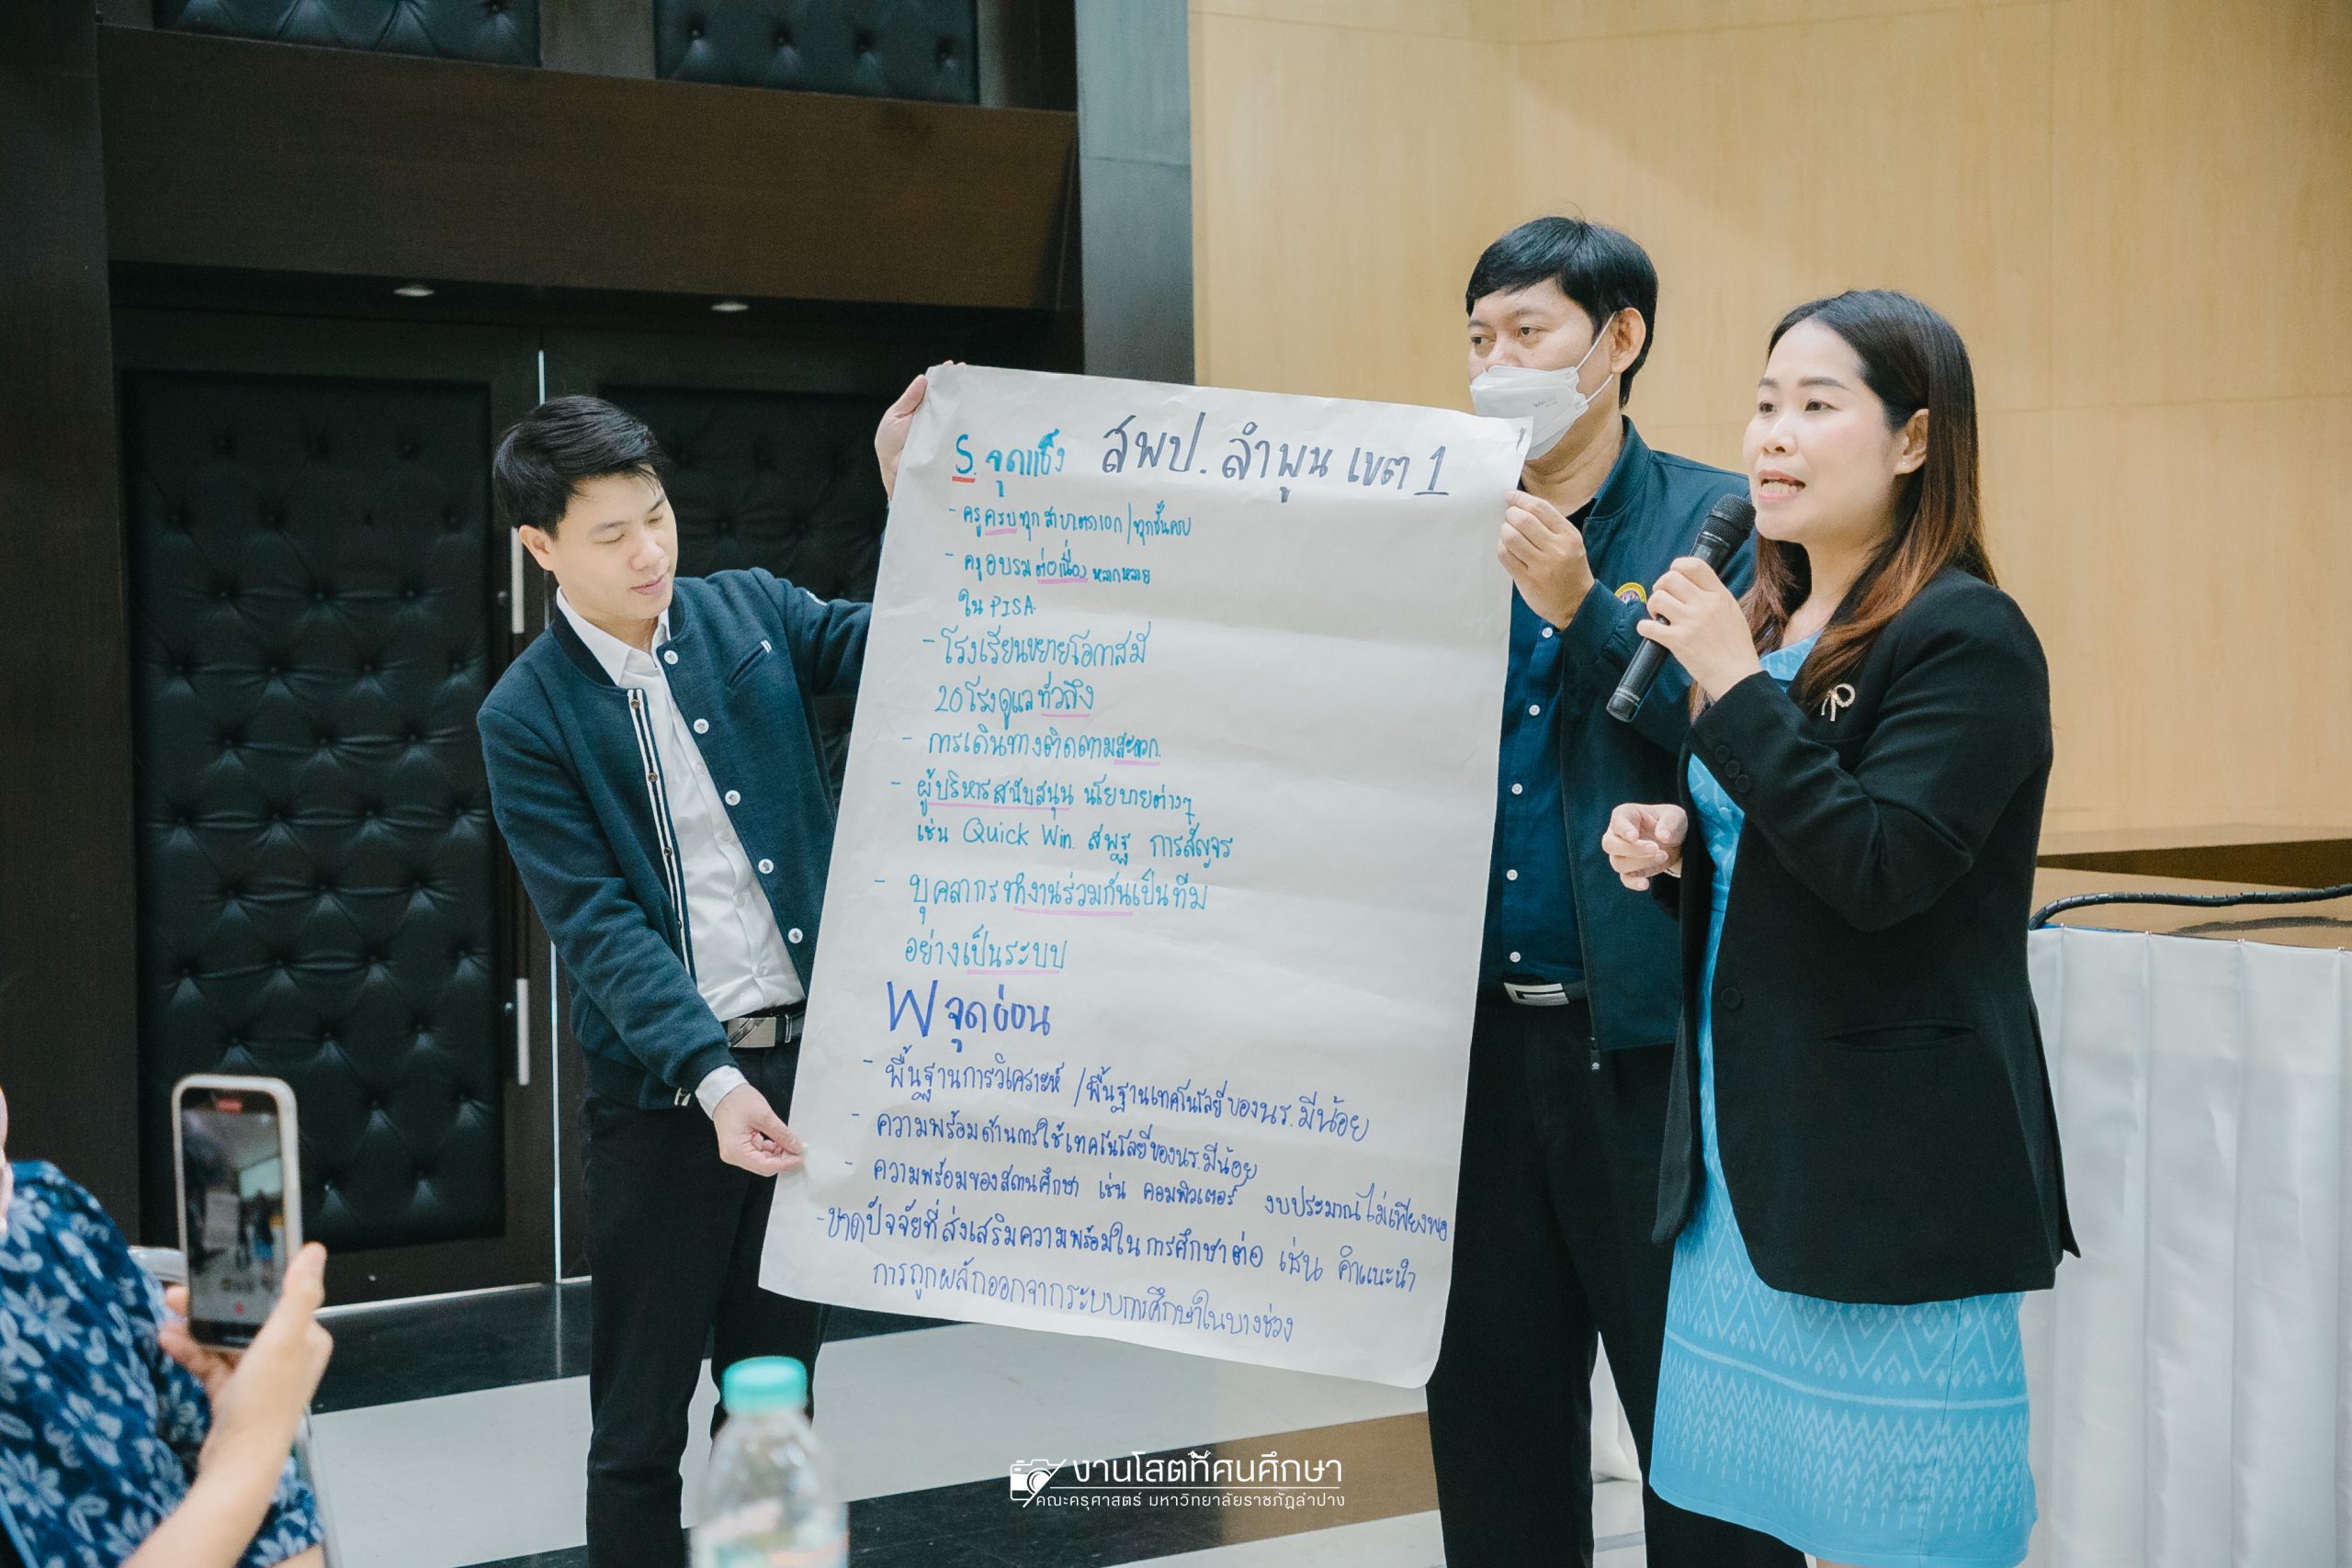 S. จุดแข็ง สพป. ลำพูน เขต 1
- ครูครบทุกสาขาวิชาเอก/ทุกชั้นครบ
- ครูอบรมต่อเนื่อง หลากหลาย
ใน PISA.
- โรงเรียนขยายโอกาสมี
20 โรงดูแลทั่วถึง
- การเดินทางติดตามสะดวก.
- ผู้บริหารสนับสนุน นโยบายต่างๆ
เช่น Quick Win. สพฐ การสัญจร
- บุคลากรทำงานร่วมกันเป็นทีม
อย่างเป็นระบบ
W จุดอ่อน
- พื้นฐานการวิเคราะห์ /พื้นฐานเทคโนโลยีของนร.มีน้อย
- ความพร้อมด้านการใช้เทคโนโลยีของนร.มีน้อย
- ความพร้อมของสถานศึกษา เช่น คอมพิวเตอร์ งบประมาณไม่เพียงพอ
- ขาดปัจจัยที่ส่งเสริมความพร้อมในการศึกษาต่อ เช่น คำแนะนำ
การถูกผลักออกจากระบบการศึกษาในบางช่วง
งานโสตทัศนศึกษา
คณะครุศาสตร์ มหาวิทยาลัยราชภัฏลำปาง